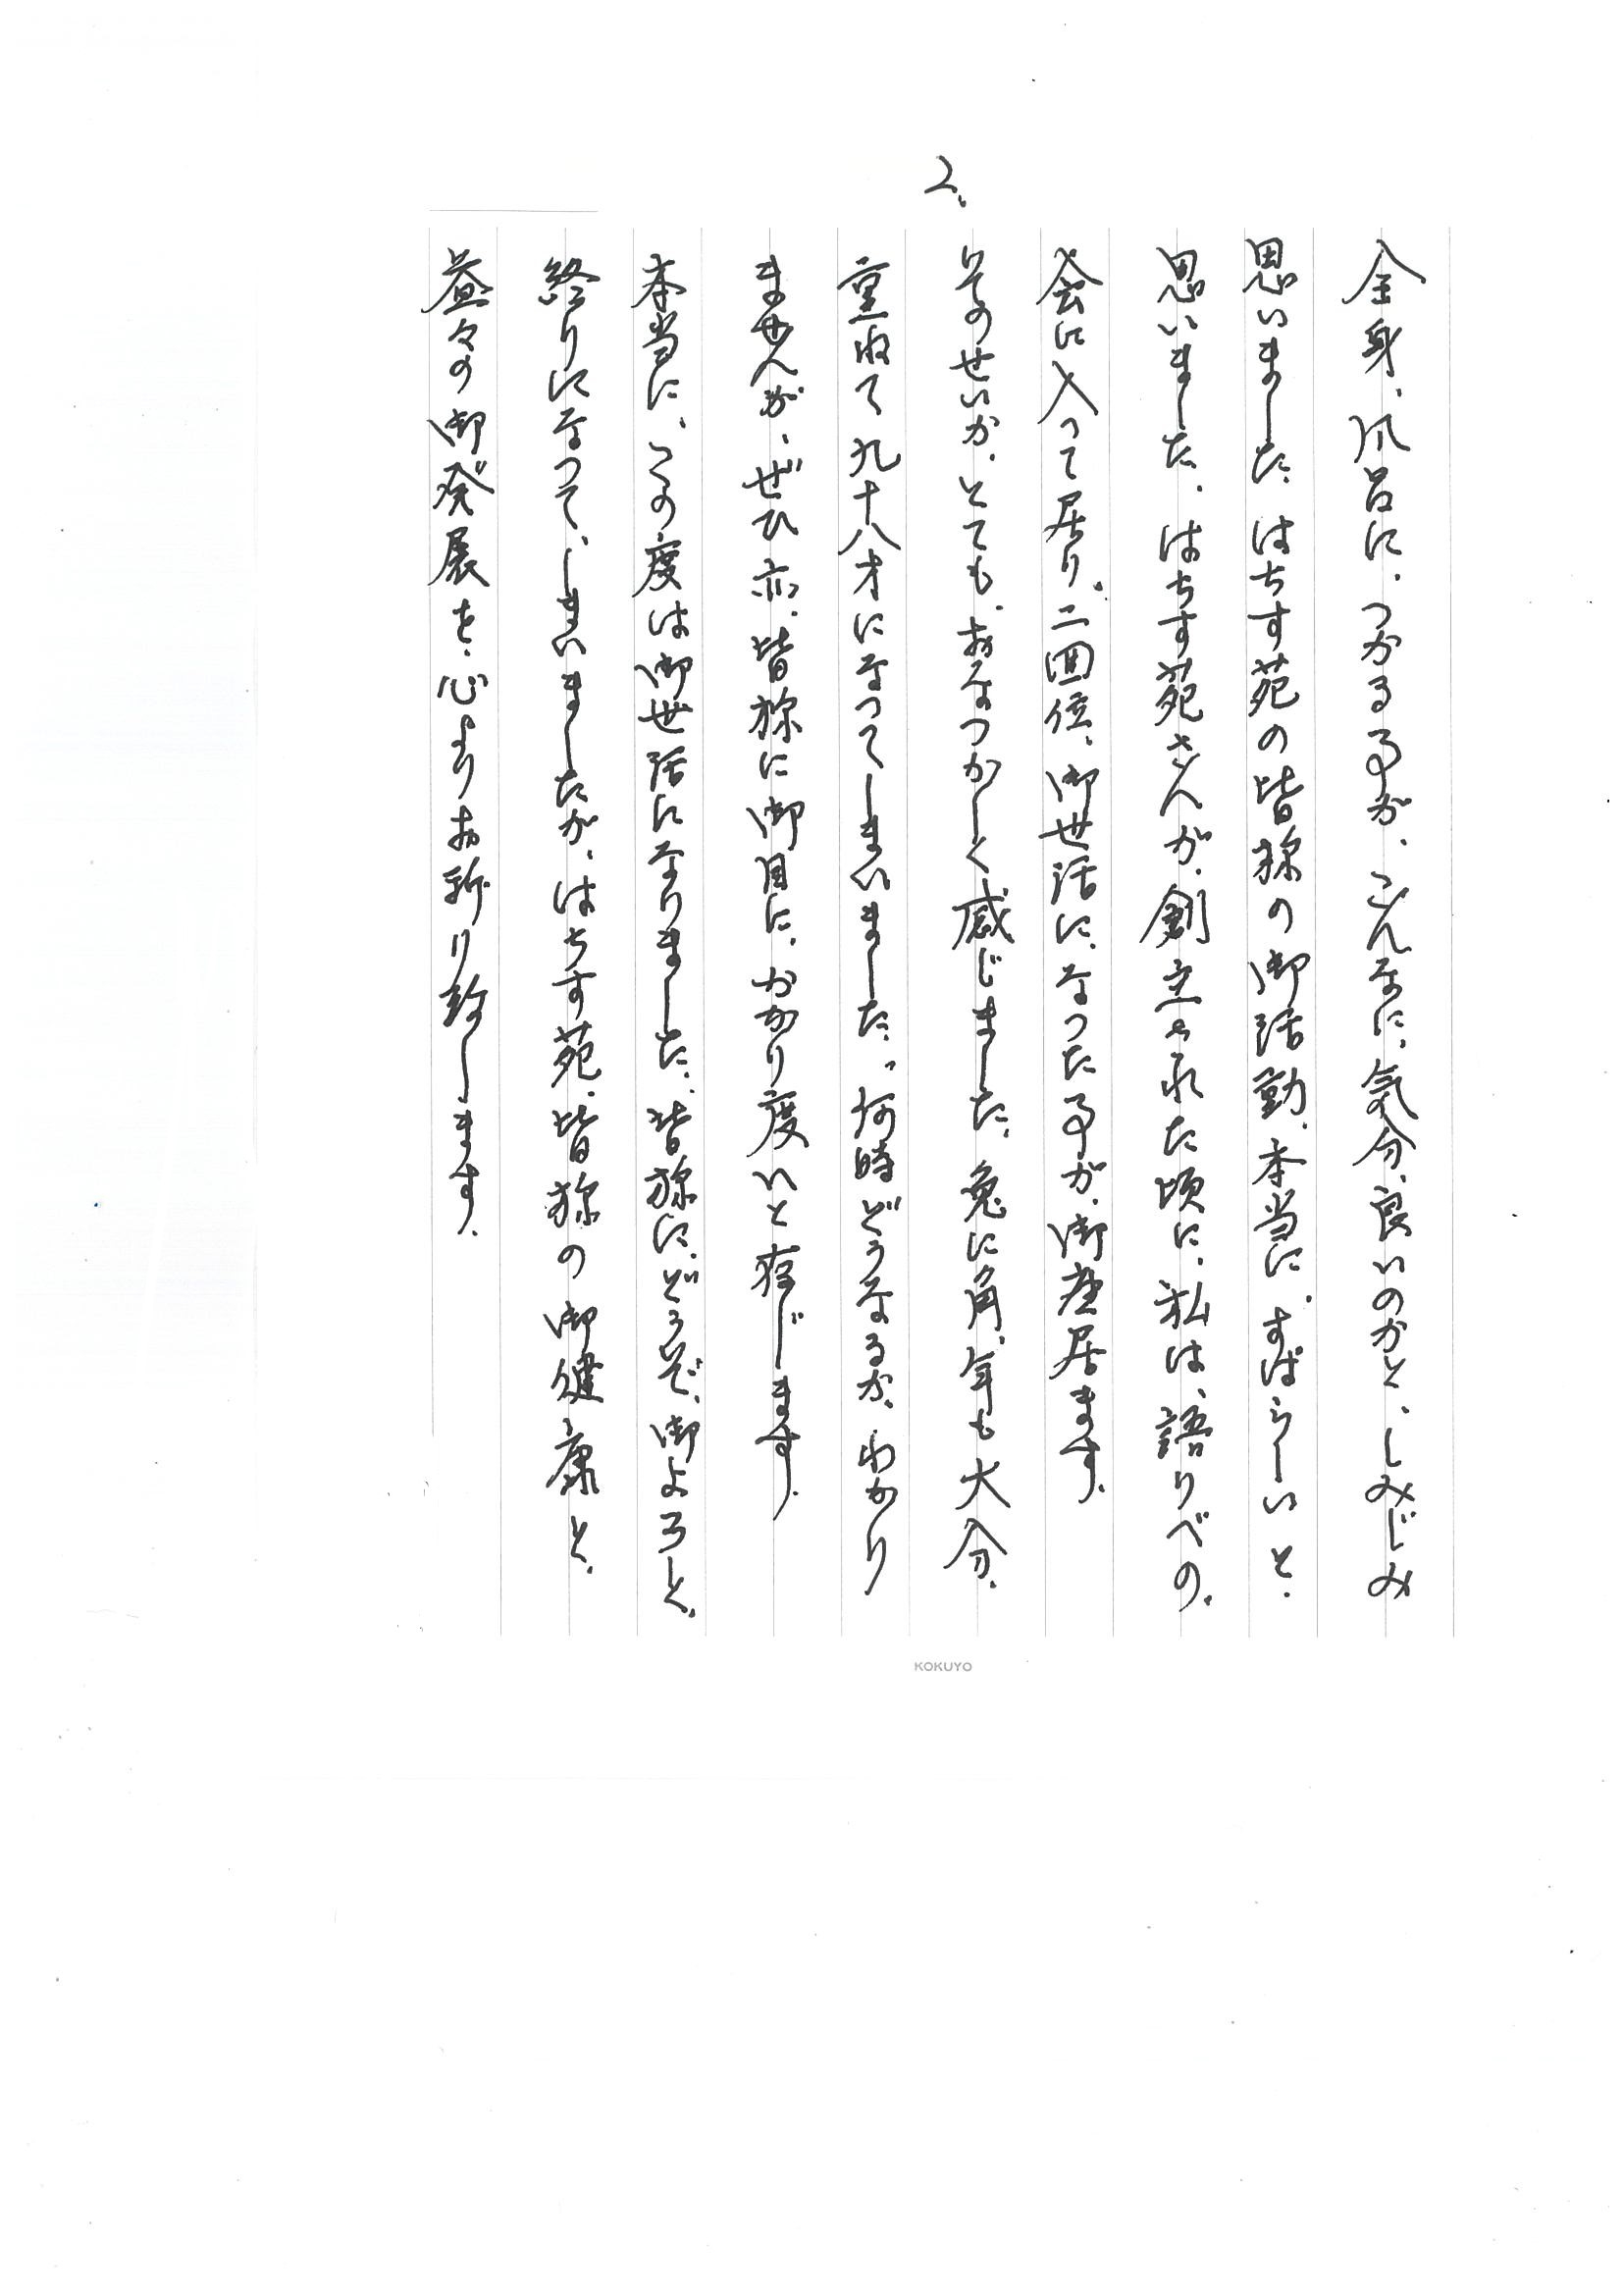 2.
全身、風呂に、つかる事が、こんなに、気分、良いのかと、しみじみ
思いました、はちす苑の皆様の御活動、本当に、すばらしいと、
思いました、はちす苑さんが、創立された頃に、私は、語りべの、
会に入って居り、二回位、御世話に、なった事が、御座居ます、
そのせいか、とても、おなつかしく感じました、兎に角、年も大分、
重ねて九十八才になってしまいました、何時どうなるか、わかり
ませんが、ぜひ亦、皆様に御目に、かかり度いと存じます、
本当に、この度は御世話になりました、皆様に、どうぞ、御よろしく、
終りになって、しまいましたが、はちす苑、皆様の御健康と、
益々の御発展を、心よりお祈り致します、
KOKUYO